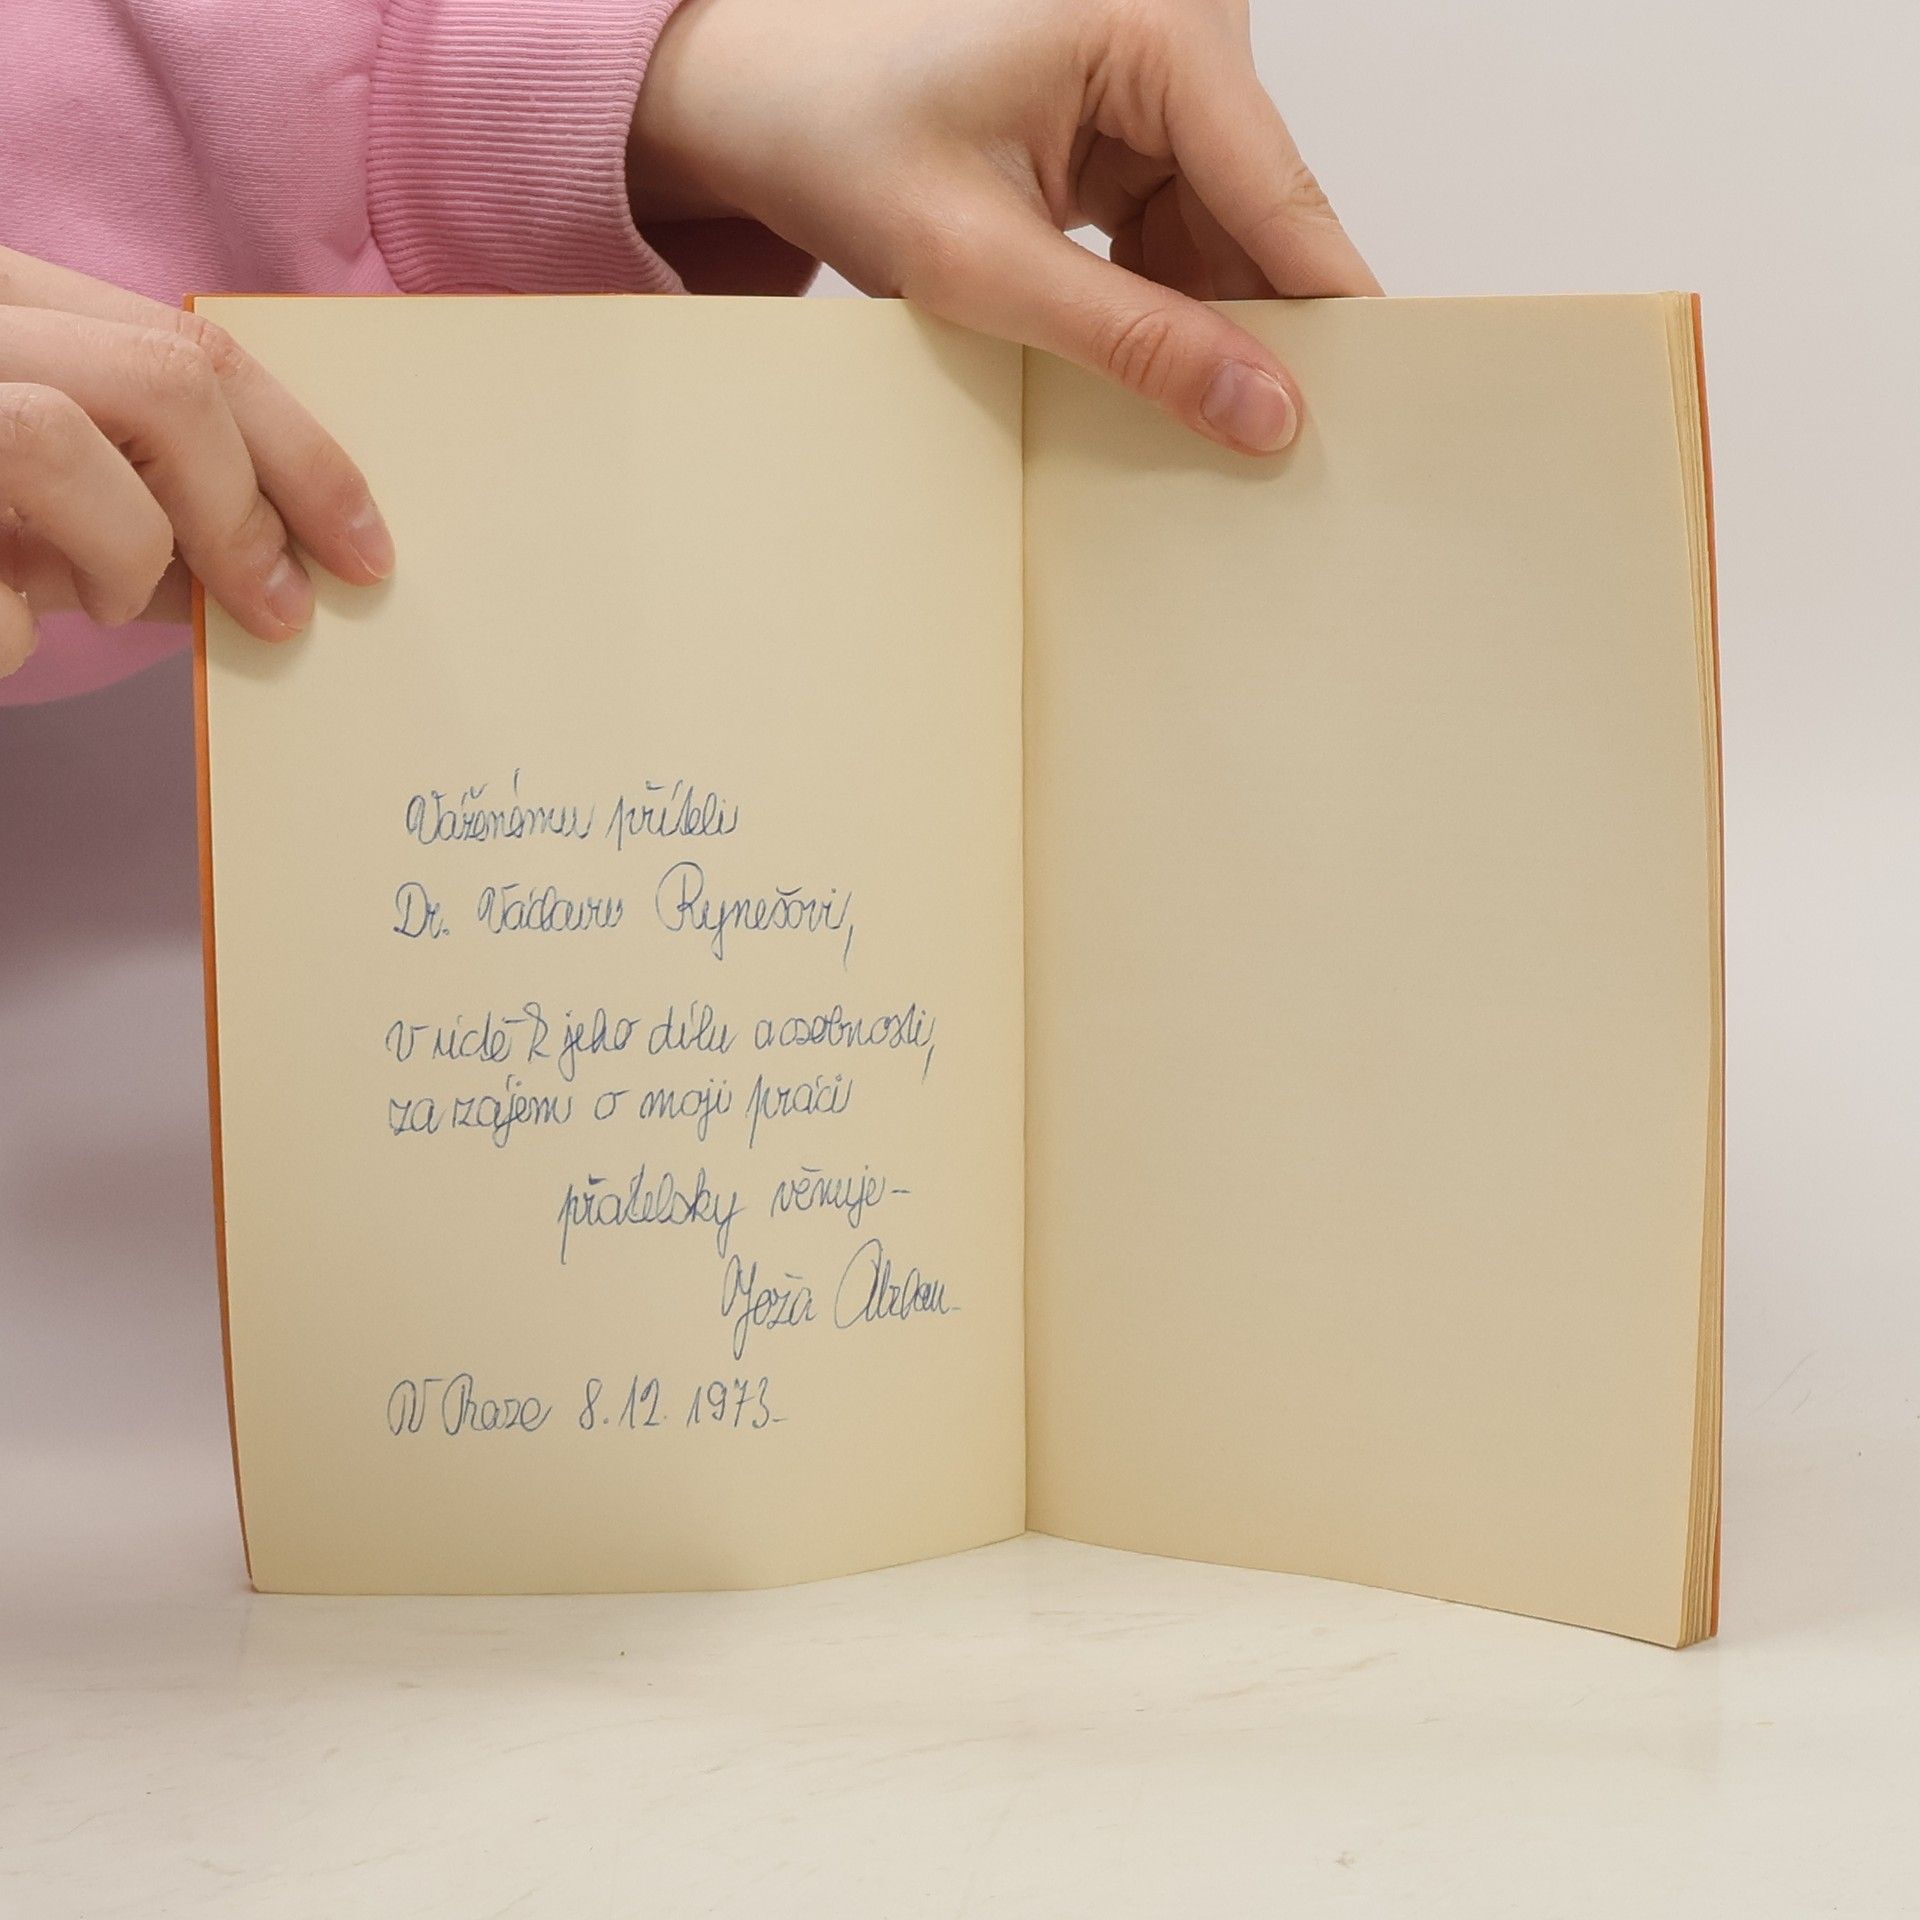 Váženému příteli
Dr. Václavu Rynešovi,
v úctě k jeho dílu a osobnosti,
za zájem o moji práci
přátelsky věnuje –
Joža
V Praze 8. 12. 1973 –